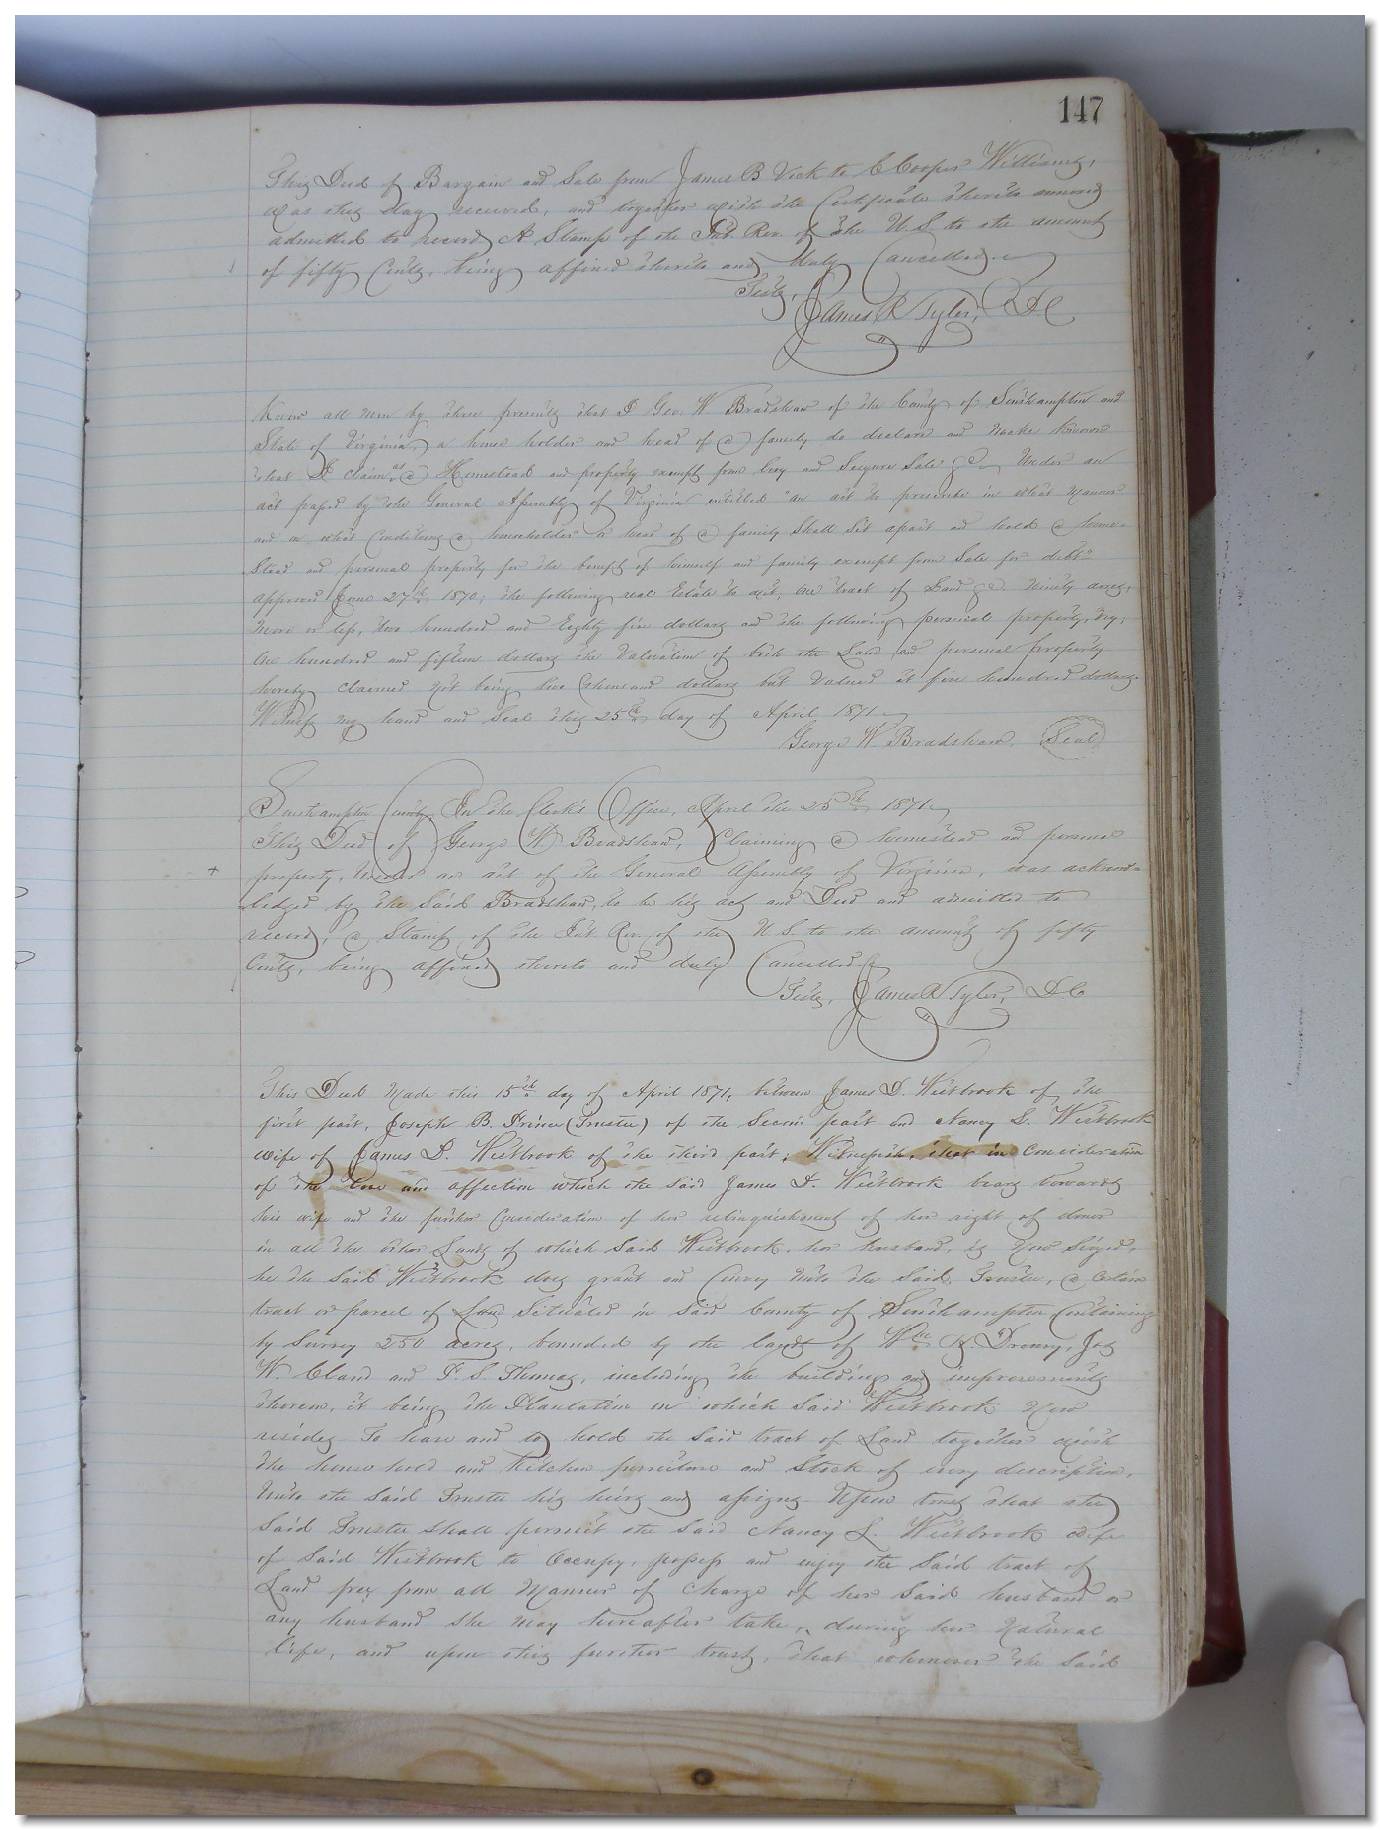 147
This Deed of Bargain and Sale from James B Vick to E Cooper Williams,
was this day received, and together with the Certificate thereto annexed
admitted to record, A Stamp of the Int. Rev. of the U.S. to the amount
of fifty Cents, being affixed thereto and duly Cancelled
Teste,
James R Tyler, D C
Know all men by these presents that I Geo. W Bradshaw of the County of Southampton and
State of Virginia, a house holder and head of a family do declare and make known
that I claim as a Homestead and property exempt from levy and Seizure Sale &c Under an
act passed by the General Assembly of Virginia entitled "an act to prescribe in what manner
and on what Conditions a householder or head of a family Shall Set apart and hold a home-
Stead and personal property for the benefit of himself and family exempt from Sale for debt"
approved June 27th 1870; the following real Estate to wit, One tract of Land &c. Ninety acres,
more or less, two hundred and Eighty five dollars and the following personal property, viz;
One hundred and fifteen dollars the Valuation of both the Land and personal property
hereby claimed not being two thousand dollars but Valued at five hundred dollars.
Witness my hand and Seal this 25th day of April 1871
George W Bradshaw, Seal
Southampton County, In the Clerk's Office, April the 25th 1871
This Deed of George W Bradshaw, Claiming a homestead and personal
+ property, Under an act of the General Assembly of Virginia, was acknow-
ledged by the Said Bradshaw, to be his act and Deed and admitted to
record, a Stamp of the Int Rev. of the U S to the amount of fifty
Cents, being affixed thereto and duly Cancelled
Teste, James R Tyler, D C
This Deed Made this 15th day of April 1871, between James D. Westbrook of the
first part, Joseph B. Prince (Trustee) of the Second part and Nancy L. Westbrook
wife of James D. Westbrook of the third part; Witnesseth, that in Consideration
of the love and affection which the said James D. Westbrook bears towards
his wife and the further Consideration of her relinquishment of her right of dower
in all the other Lands of which Said Westbrook, her husband, is Now Siezed,
he the Said Westbrook does grant and Convey Unto the Said Trustee, a Certain
tract or parcel of Land Situated in Said County of Southampton Containing
by Survey 250 acres, bounded by the lands of Wm H. Drewry, Jas
W. Cland and F. S. Thomas, including the buildings and improvements
thereon, it being the Plantation on which Said Westbrook Now
resides To have and to hold the Said tract of Land together with
the house hold and Kitchen furniture and Stock of every description,
Unto the Said Trustee his heirs and assigns Upon trust that the
Said Trustee Shall permit the Said Nancy L. Westbrook wife
of Said Westbrook to Occupy, possess and enjoy the Said tract of
Land free from all Manner of Charge of her Said husband or
any husband She may hereafter take, during her Natural
life, and upon this further trust, that whenever the Said